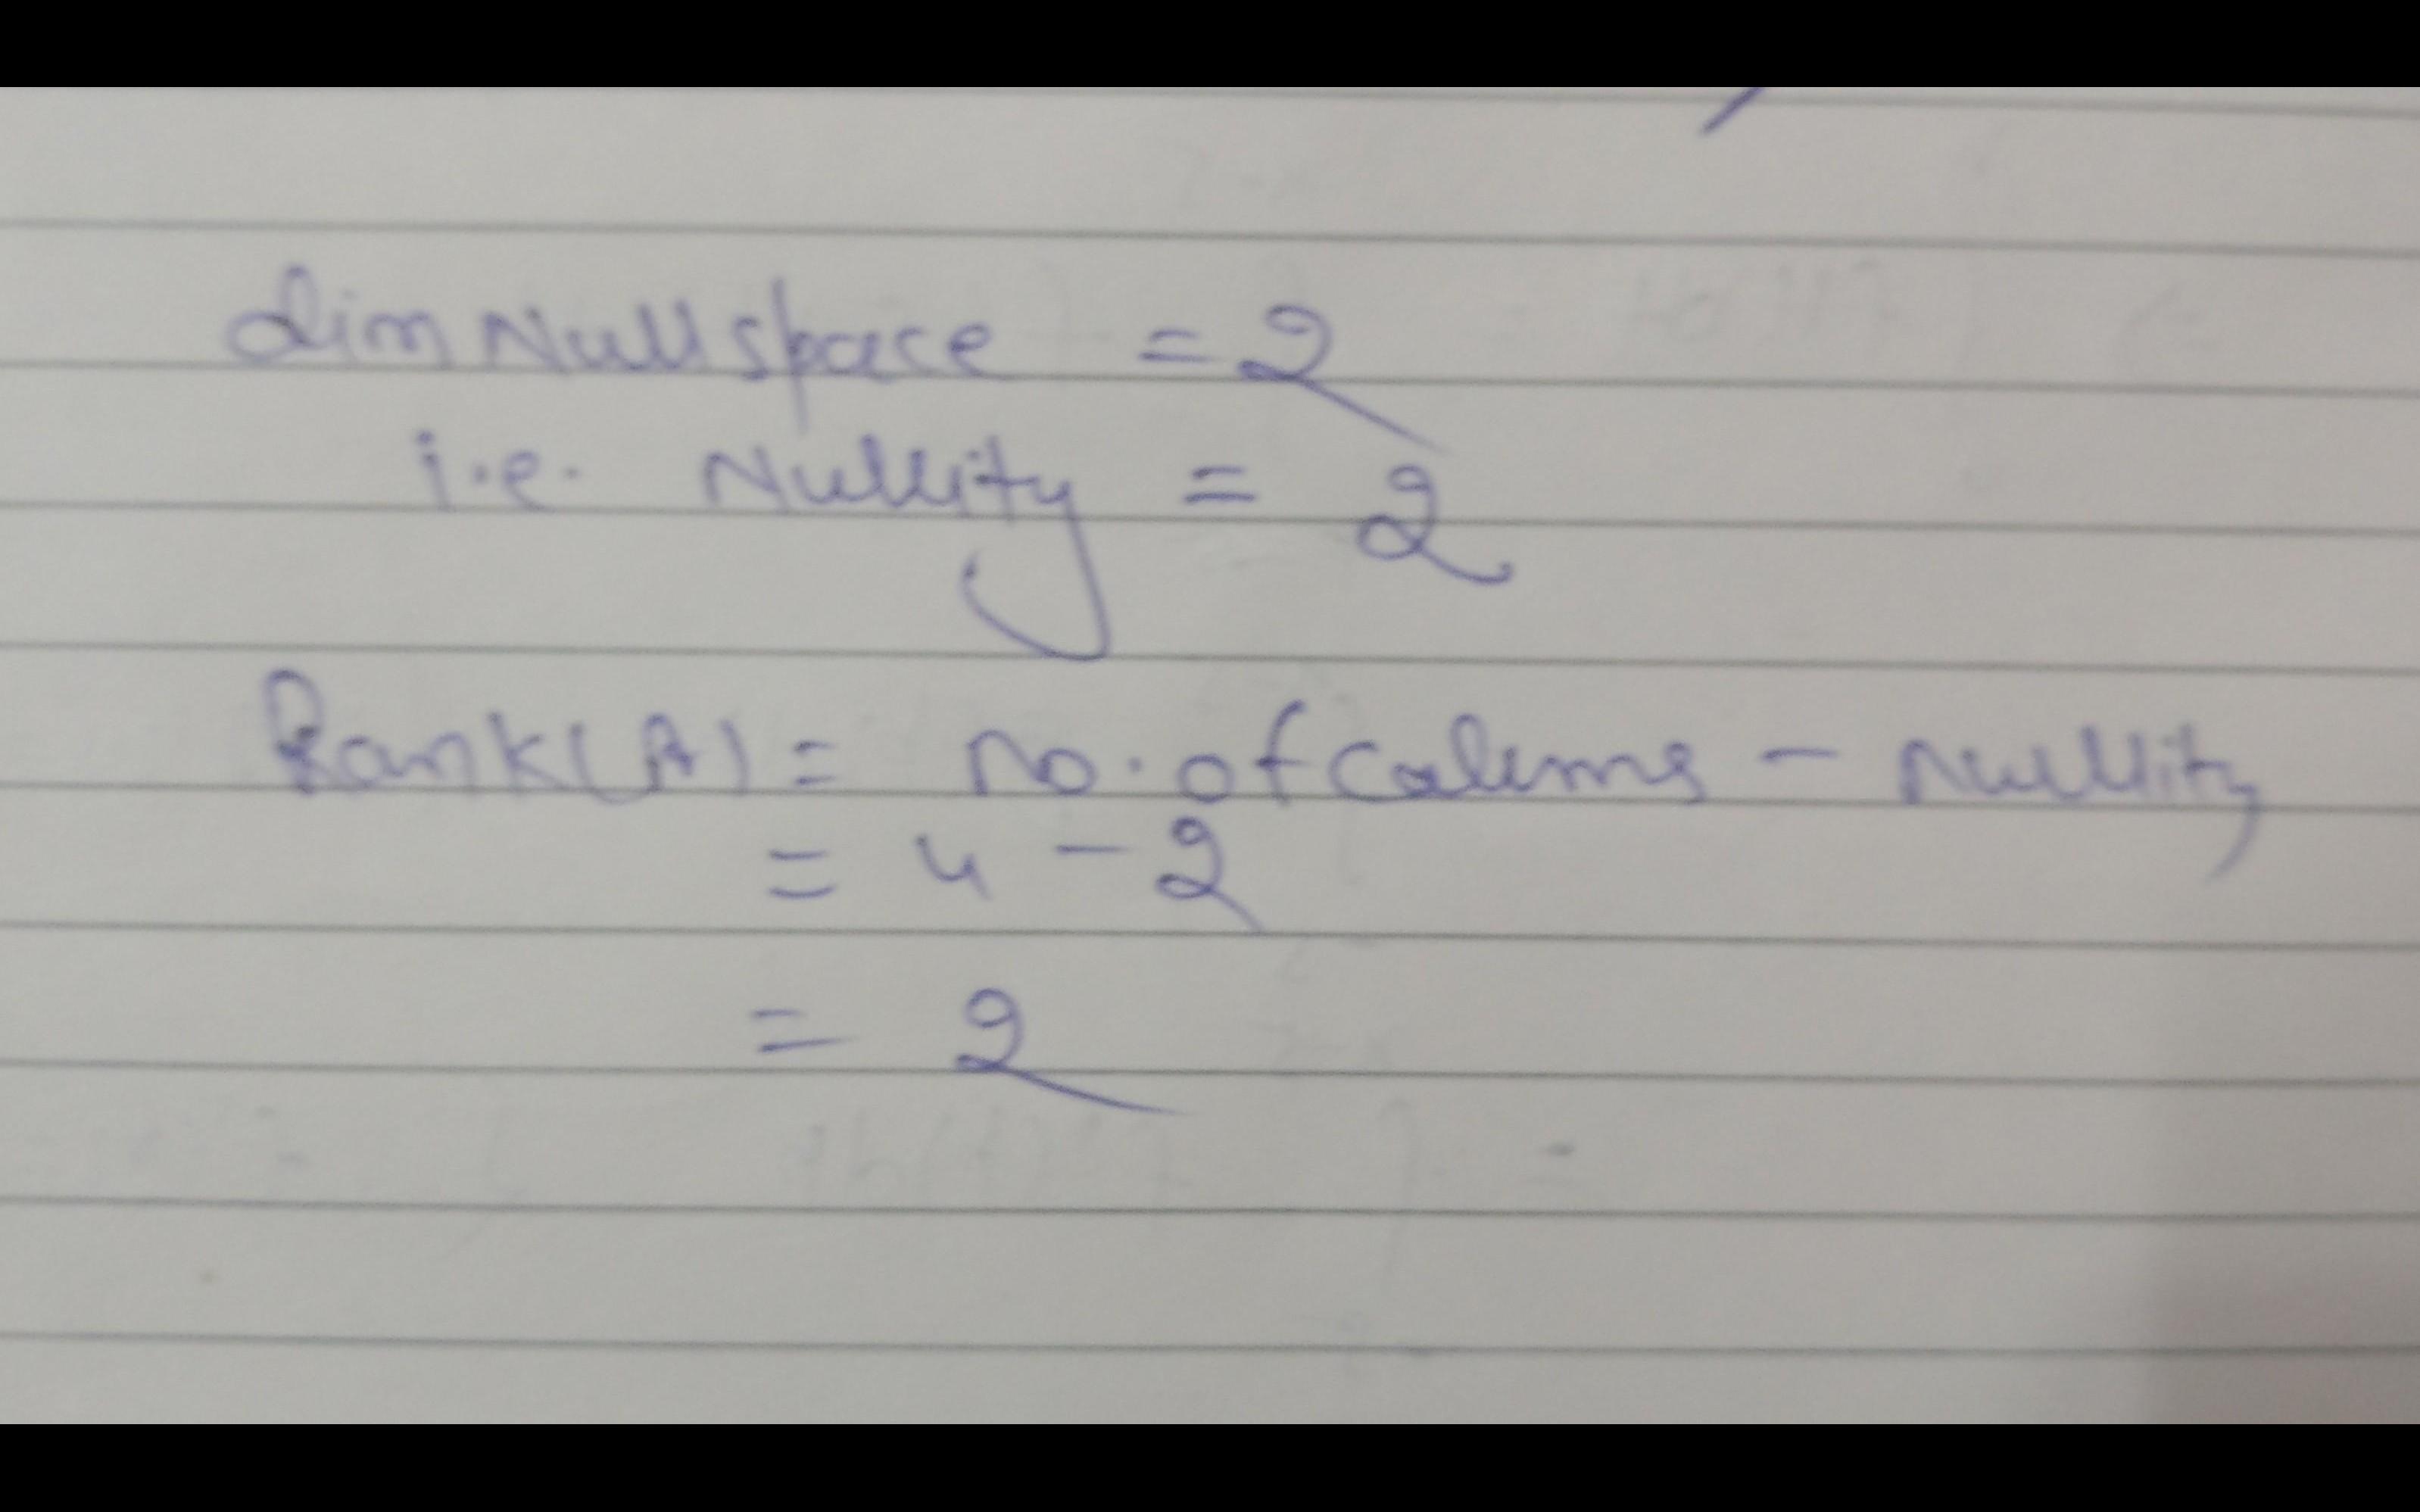 dim Null space = 2
i.e. Nullity = 2
Rank(A) = no. of Colums - Nullity
= 4 - 2
= 2